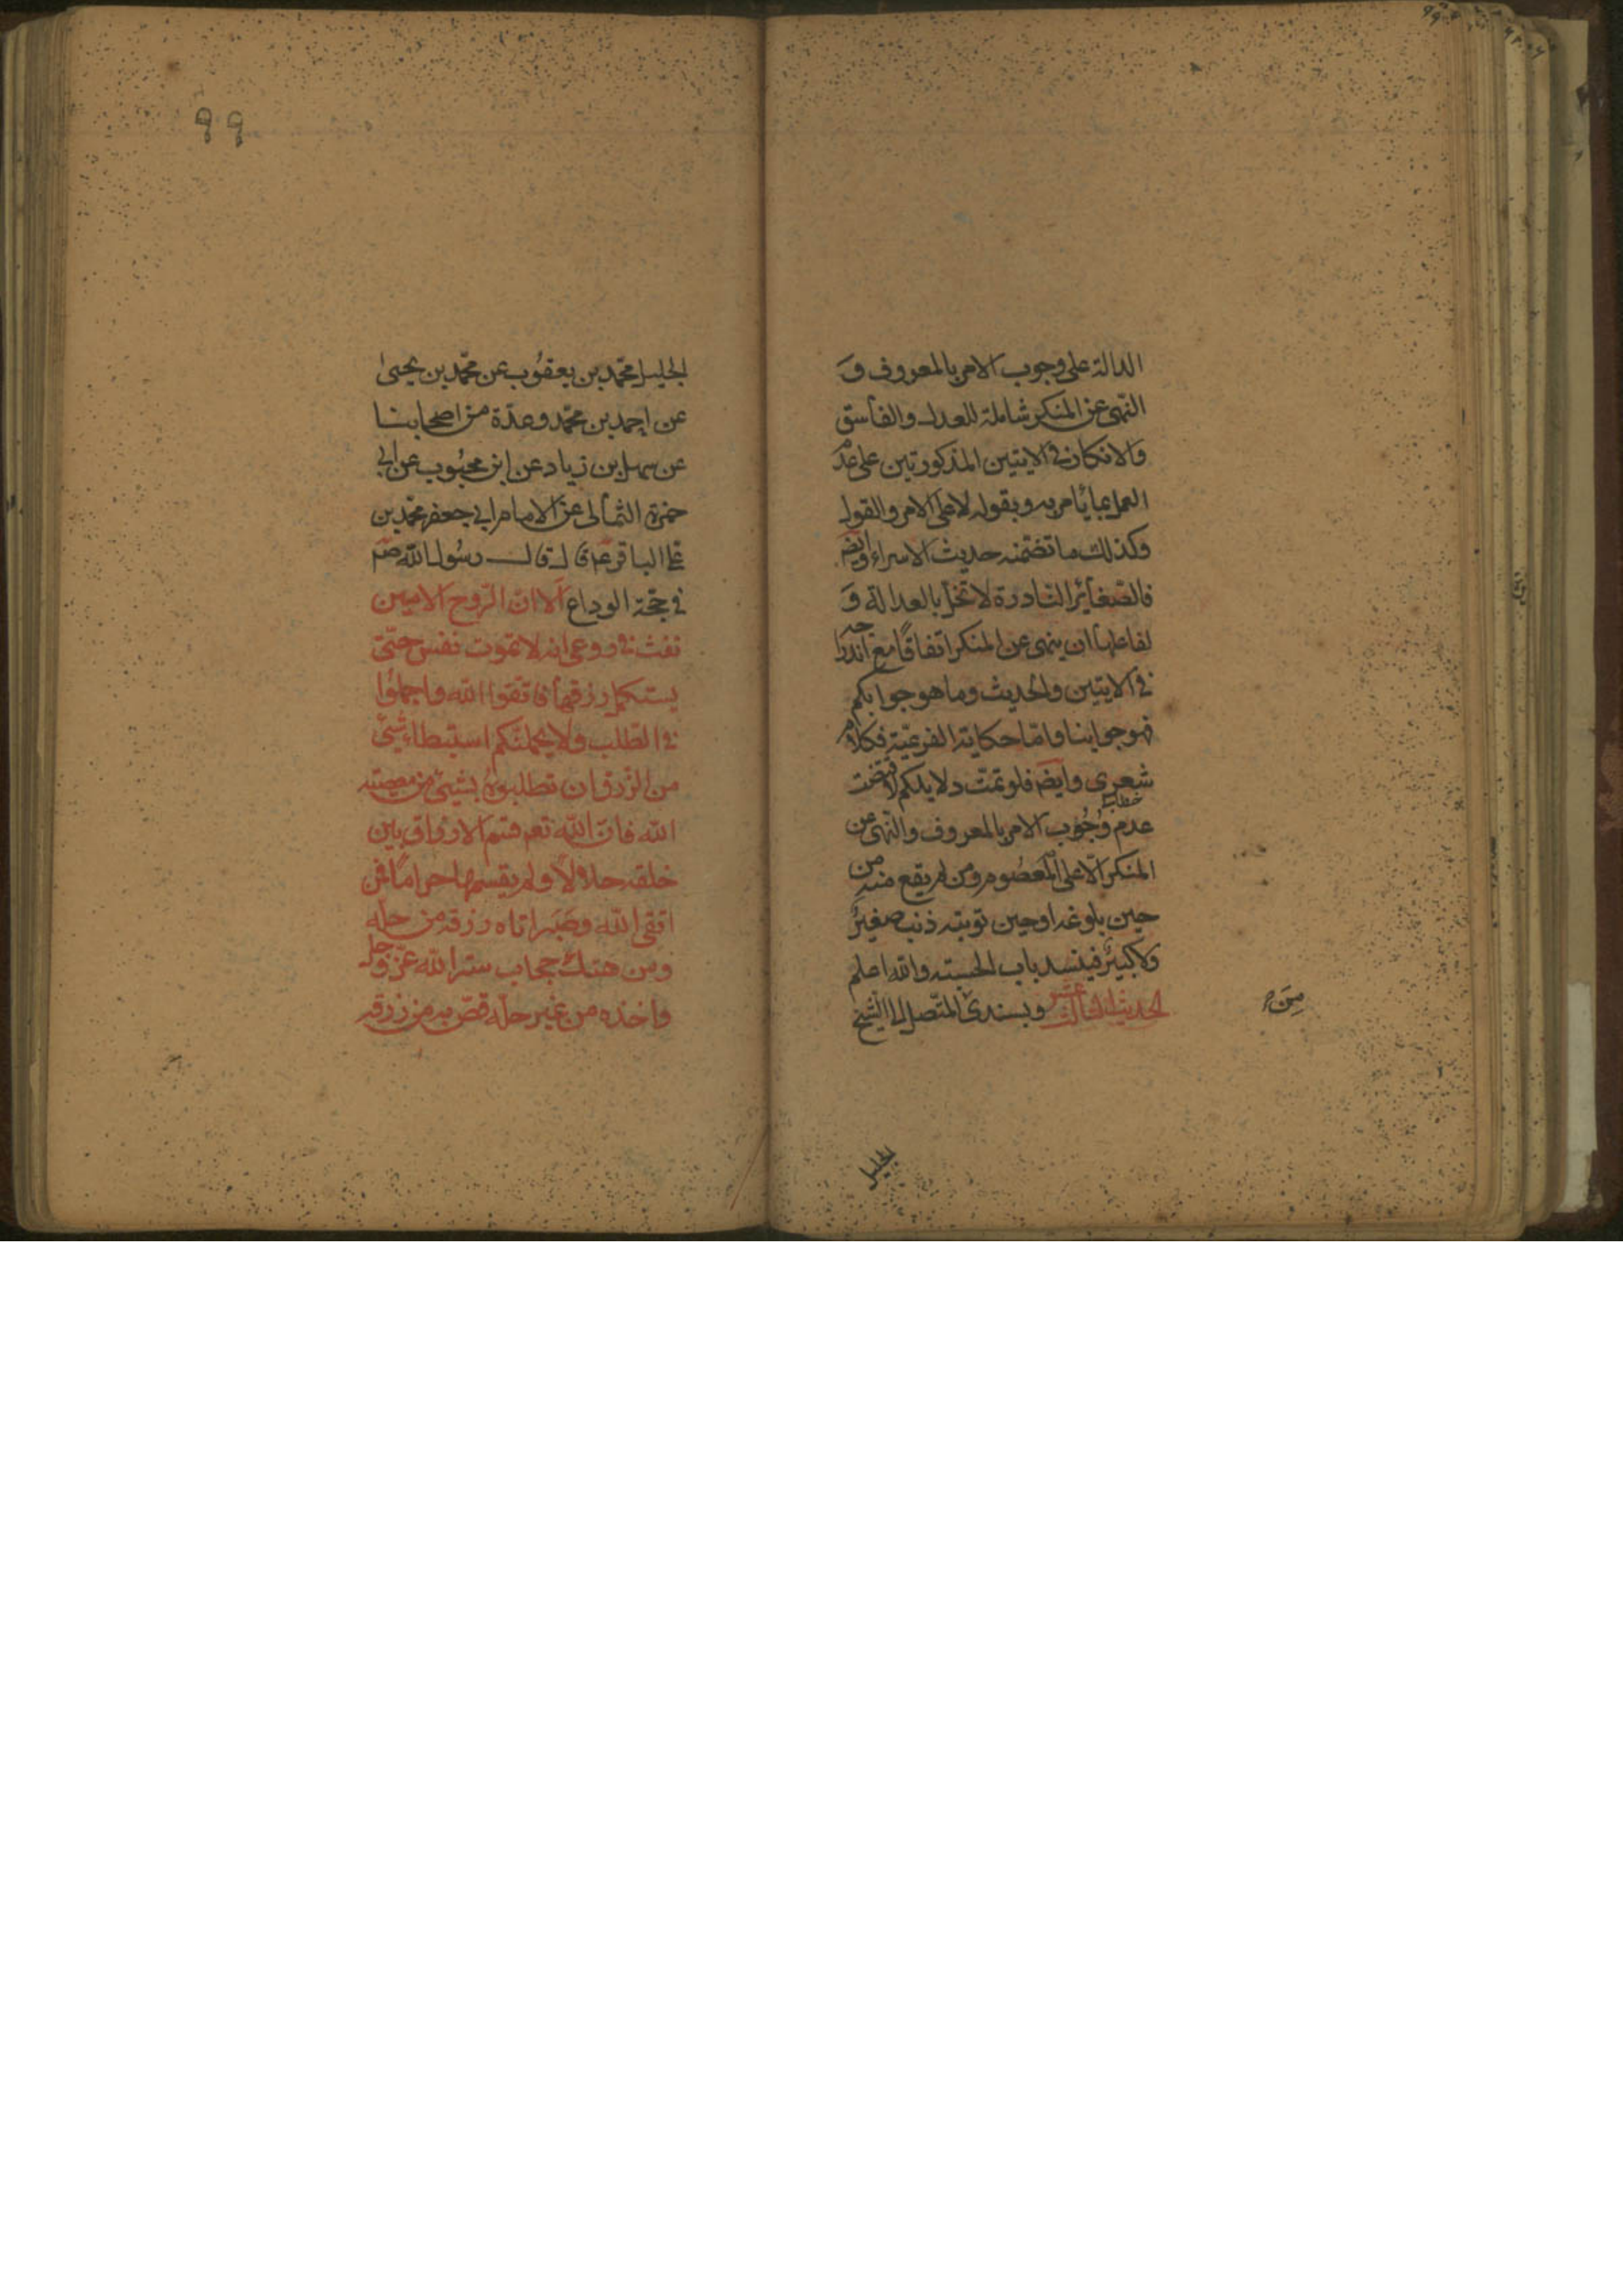 الدالة على وجوب الامر بالمعروف و
النهى عن المنكر شاملة للعدل والفاسق
والانكار فى الايتين المذكورتين على عدم
العمل بما يأمر به ويقوله لا على الامر والقول
وكذلك ما تضمنه حديث الاسراء وايضا
فالصغائر النادرة لا تخل بالعدالة و
لفاعلها ان ينهى عن المنكر اتفاقا مع اندراجه
فى الايتين والحديث وما هو جوابكم
فهو جوابنا واما حكاية الفرعية فكلام
شعرى وايض فلو تمت دلايلكم لاقتضت
عدم وجوب الامر بالمعروف والنهى عن
المنكر الا على المعصوم ومن لم يقع منه من
حين بلوغه او حين توبته ذنب صغير
ولا كبير فينسد باب الحسبة والله اعلم
الحديث الثالث عشر وبسندى المتصل الى الشيخ
الجليل
٩٩
الجليل محمد بن يعقوب عن محمد بن يحيى
عن احمد بن محمد وعدة من اصحابنا
عن سهل بن زياد عن ابن محبوب عن ابى
حمزة الثمالى عن الامام ابى جعفر محمد بن
على الباقر ع قال قال رسول الله صم
فى حجة الوداع الا ان الروح الامين
نفث فى روعى انه لا تموت نفس حتى
يستكمل رزقها فاتقوا الله واجملوا
فى الطلب ولا يحملنكم استبطاء شيئ
من الرزق ان تطلبوه بشيئ من معصية
الله فان الله تعم قسم الارزاق بين
خلقه حلالا ولم يقسمها حراما فمن
اتقى الله وصبر اتاه رزقه من حله
ومن هتك حجاب ستر الله عز وجل
واخذه من غير حله قص به من رزقه